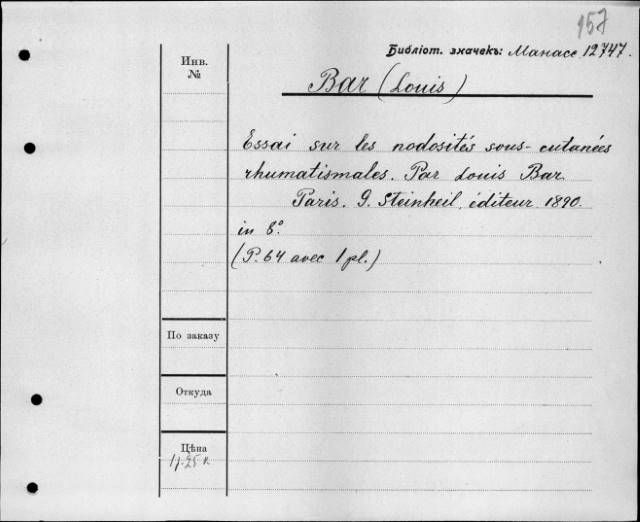 157
Библіот. значекъ: Манасс. 12747.
Инв.
№
Bar (Louis)
Essai sur les nodosités sous-cutanées
rhumatismales. Par Louis Bar
Paris. G. Steinheil, éditeur 1890.
in 8°.
(P. 64 avec 1 pl.)
По заказу
Откуда
Цѣна